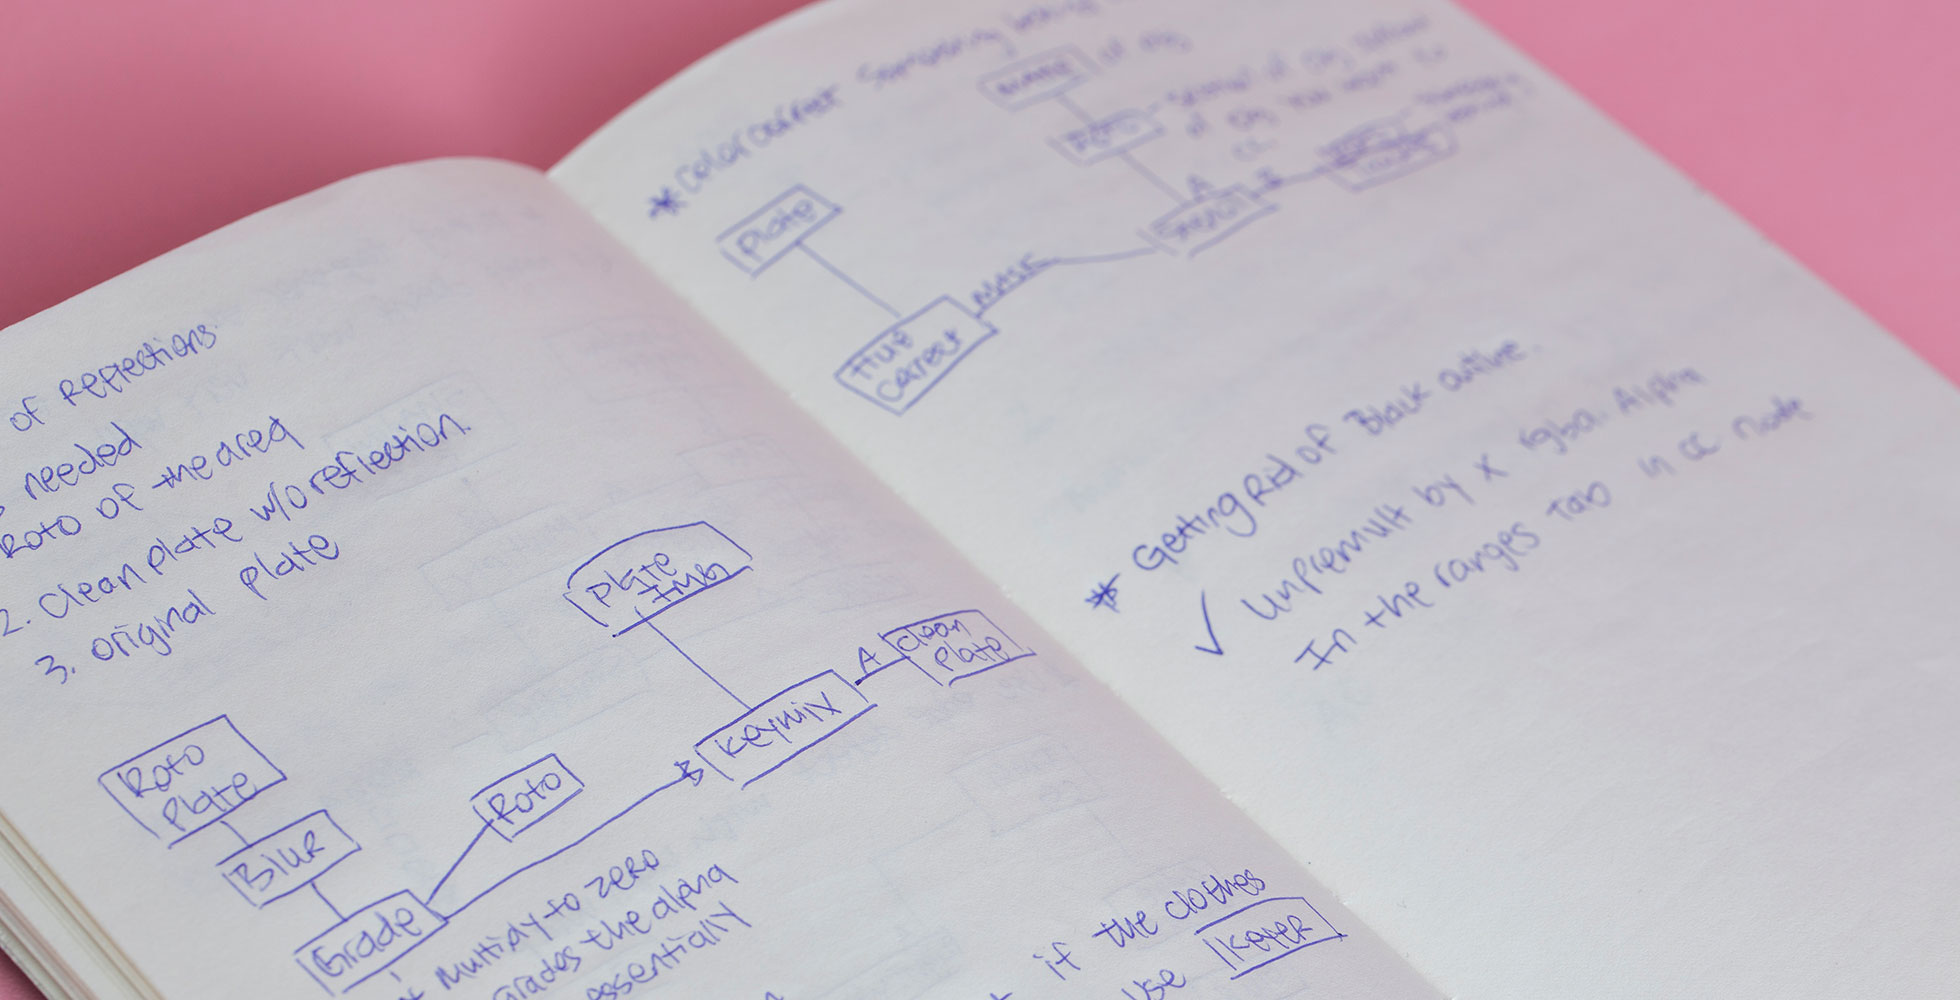 of reflections
needed
Roto of the area
2. Clean plate w/o reflection.
3. original plate
Plate
Clean
Plate
A
Keymix
B
Roto
Plate
Roto
Blur
Grade
* Multiply to zero
Grades the alpha
essentially
if the clothes
use Keyer
* Color correct Something
Plate
Roto
A
B
MASK
Hue
Correct
* Getting Rid of Black outline.
✓ Unpremult by x rgba. Alpha
In the ranges Tab in CC node